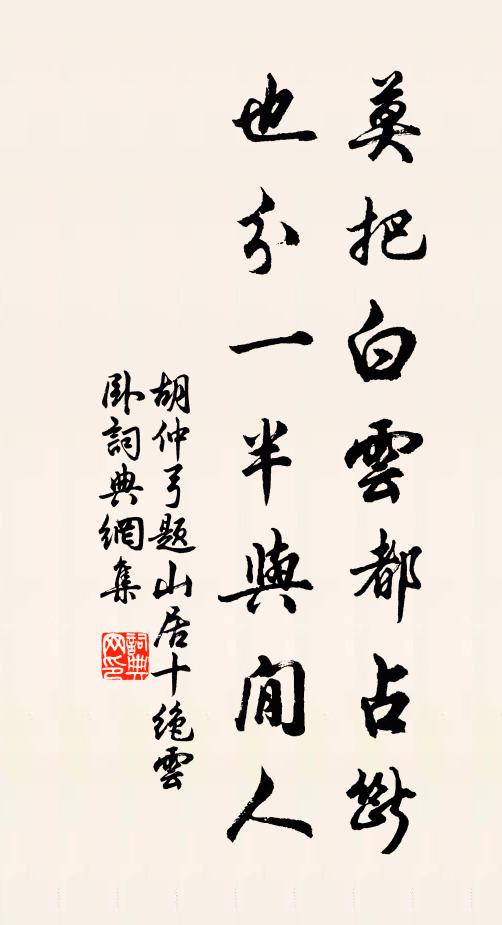 莫把白雲都占斷
也分一半與閒人
胡仲弓題山居十絕雲
臥詞典網集
詞典網印